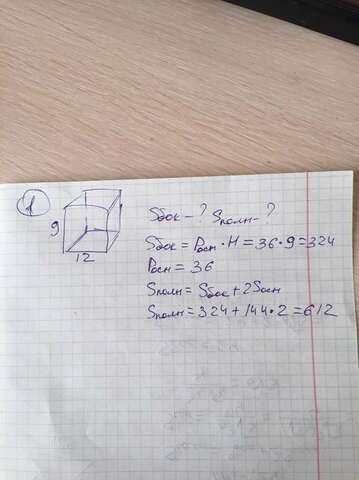 1
9
12
Sбок-? Sполн-?
Sбок = Pосн · H = 36 · 9 = 324
Pосн = 36
Sполн = Sбок + 2Sосн
Sполн = 324 + 144 · 2 = 612